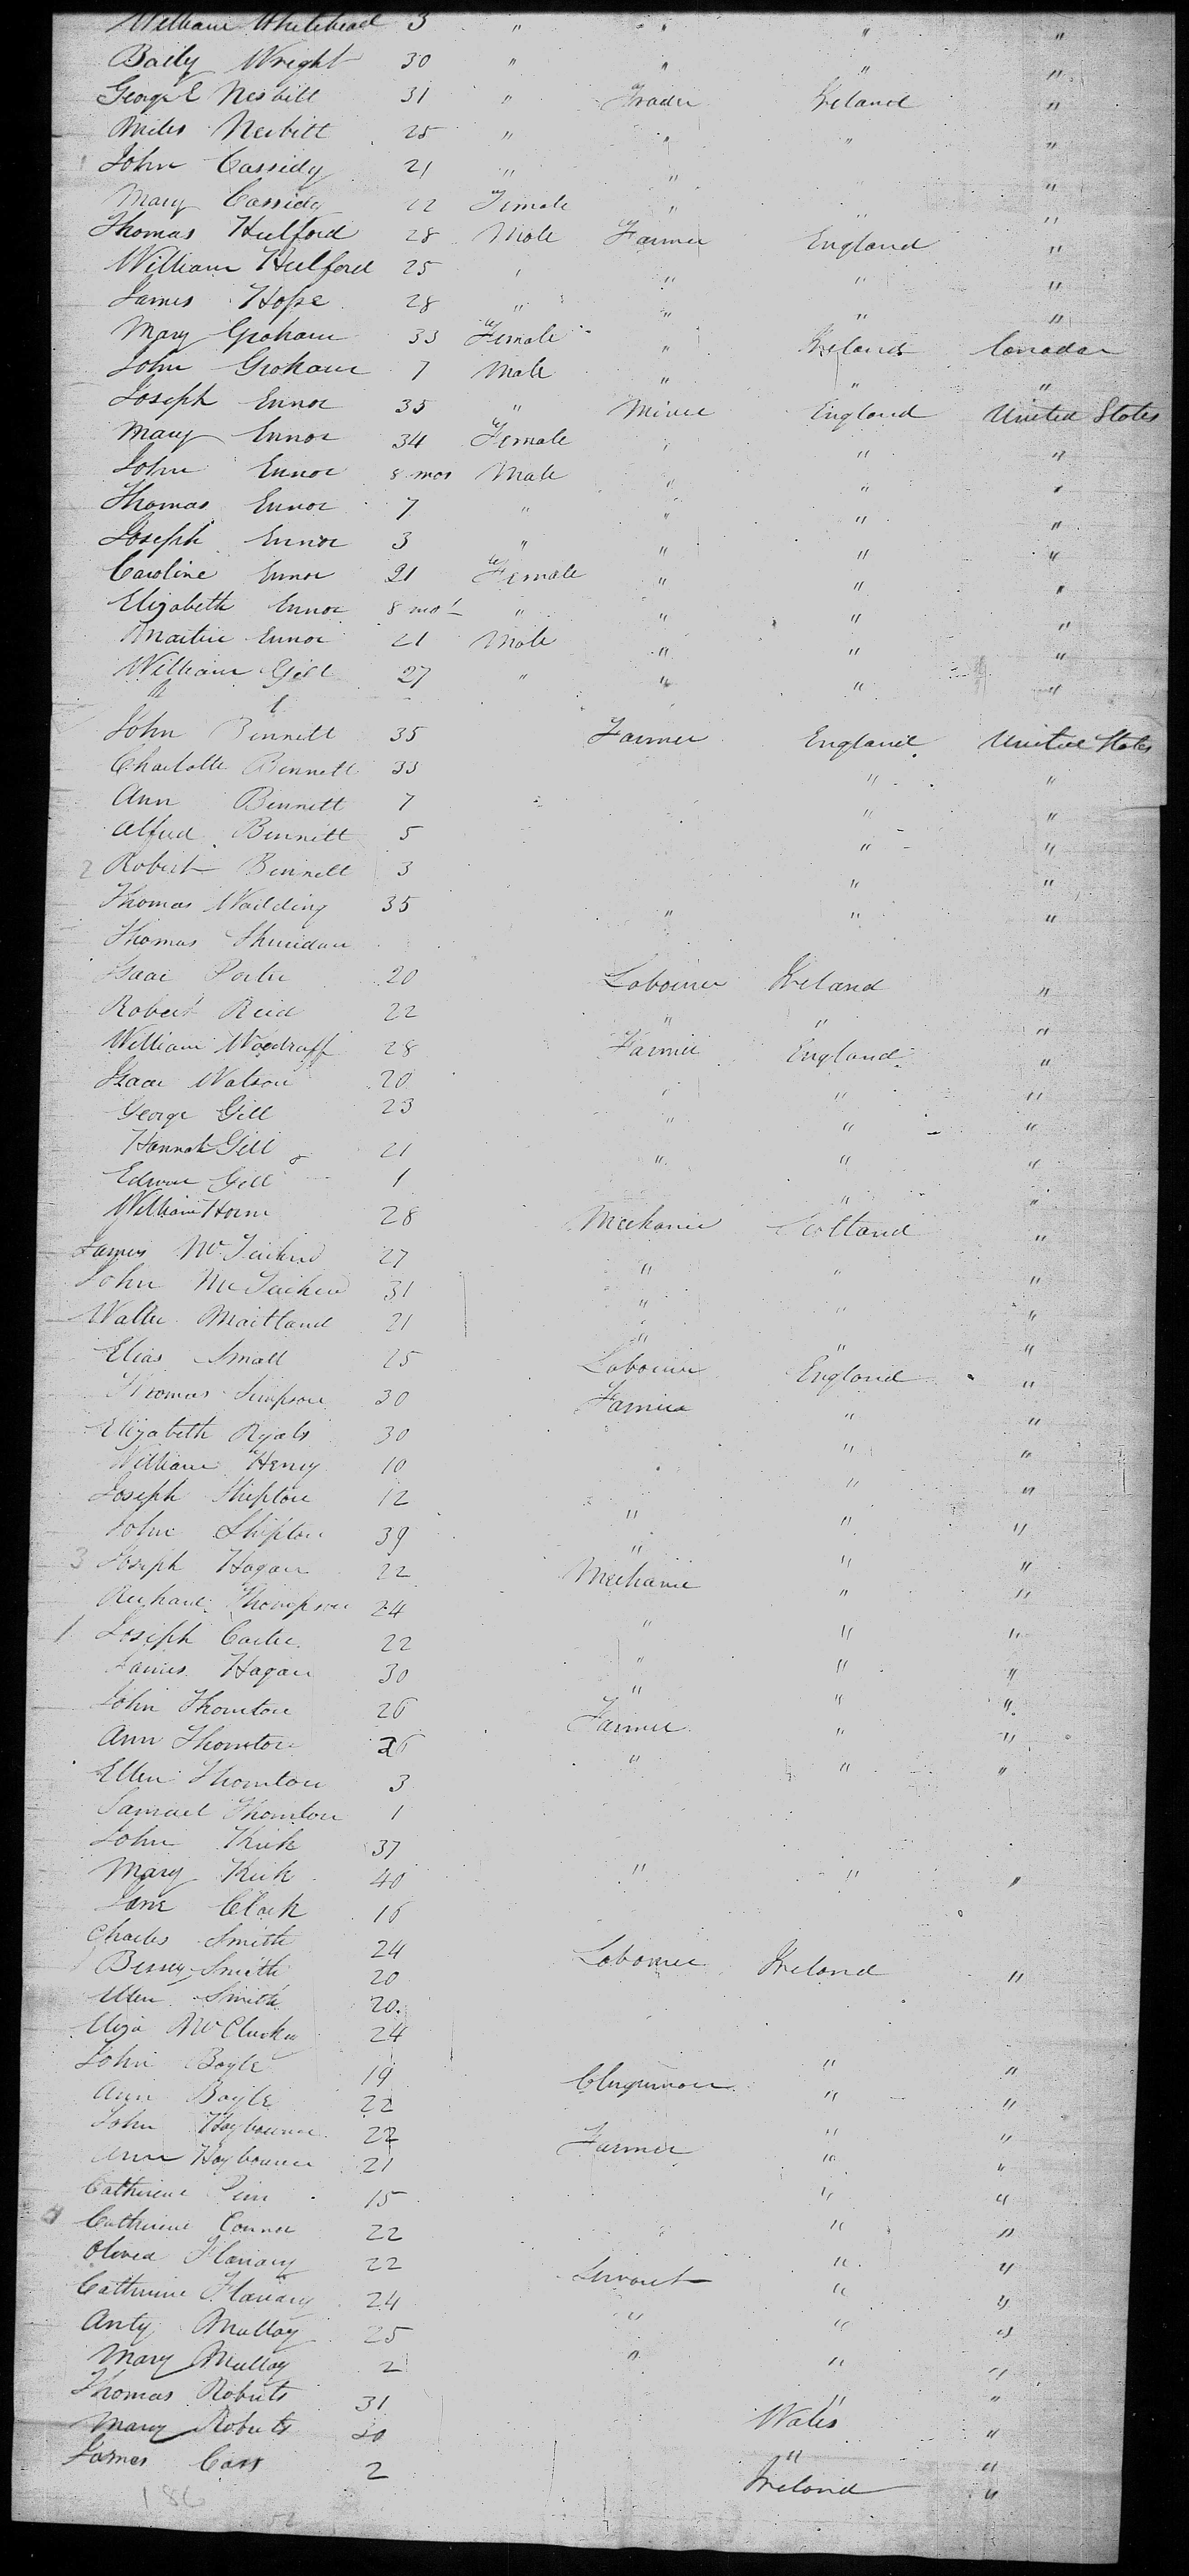 William Whitehead 3 " " " "
Baily Wright 30 " " " "
George Nesbitt 31 " Trader Ireland "
Miles Nesbitt 25 " " " "
John Cassidy 21 " " "
Mary Cassidy 22 Female " " "
Thomas Hulford 28 Male Farmer England "
William Hulford 25 " " " "
James Hope 28 " " " "
Mary Graham 33 Female " Ireland Canada
John Graham 7 Male " " "
Joseph Ennor 35 " Miner England United States
Mary Ennor 34 Female " " "
John Ennor 8 mos Male " " "
Thomas Ennor 7 " " " "
Joseph Ennor 3 " " " "
Caroline Ennor 21 Female " " "
Elizabeth Ennor 8 mos " " " "
Martin Ennor 21 Male " " "
William Gill 27 " " " "
John Bennett 35 Farmer England United States
Charlotte Bennett 33 " "
Ann Bennett 7 " "
Alfred Bennett 5 " "
2 Robert Bennett 3 " "
Thomas Wadding 35 " " "
Thomas Sheridan
Isaac Porter 20 Labourer Ireland "
Robert Reid 22 " " "
William Woodruff 28 Farmer England "
Isaac Watson 20 " " "
George Gill 23 " " "
Hannah Gill 21 " " "
Edwin Gill 1 " "
William Horn 28 Mechanic Scotland "
James 27 " " "
John 31 " " "
Walter Maitland 21 " " "
Elias Small 25 Labourer England "
Thomas Simpson 30 Farmer " "
Elizabeth Ryals 30 " "
William Henry 10 " "
Joseph Shipton 12 " " "
John Shipton 39 " " "
3 Joseph Hagan 22 Mechanic " "
Richard Thompson 24 " " "
1 Joseph Carter 22 " " "
James Hagan 30 " " "
John Thornton 26 Farmer " "
Ann Thornton 26 " " "
Ellen Thornton 3
Samuel Thornton 1
John Kirk 37
Mary Kirk 40 " " "
Jane Clark 16
Charles Smith 24 Labourer Ireland "
Smith 20
Ellen Smith 20
Eliza McClusky 24
John Boyle 19 Clergyman " "
Ann Boyle 22 " "
John Haybourne 22 Farmer " "
Ann Haybourne 21 " "
Catherine 15 " "
4 Catherine Connor 22 " "
Flanary 22 Servant " "
Catherine Flanary 24 " " "
Anty Mulloy 25 " " "
Mary Mulloy 2 " "
Thomas Roberts 31 Wales "
Mary Roberts 30 " "
James Cass 2 Ireland "
186